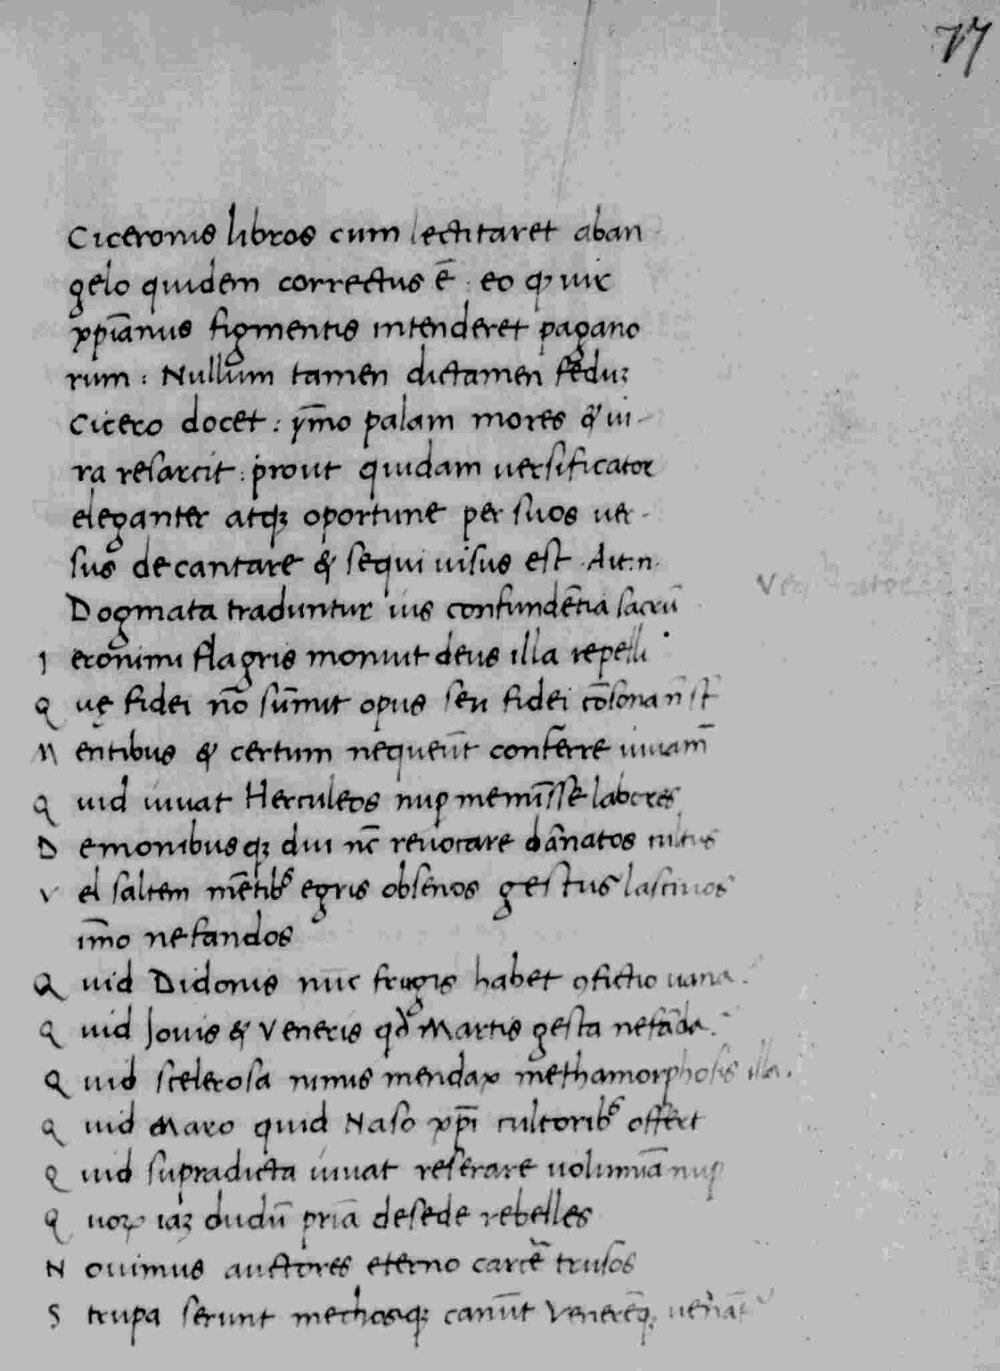 77
Ciceronis libros cum lectitaret aban
gelo quidem correctus ē : eo qꝫ uix
xp̄ianus figmentis intenderet pagano
rum : Nullum tamen dictamen feduꝫ
Cicero docet : ym̄o palam mores & ui-
ra resarcit : prout quidam uersificator
eleganter atqꝫ oportune per suos uer-
sus decantare & sequi uisus est . Ait.n.
Dogmata traduntur ius confundēcia sacrū
I eronimi flagris monuit deus illa repelli
Q ue fidei nō sūmit opus seu fidei cōsona n̄ st̄
M entibus & certum nequeūt conferre iuuam̄
Q uid iuuat Herculeos nuꝑ meminīsse labores
D emonibusqꝫ diu nc̄ reuocare dānatos cultus
V el saltem mētibꝰ egris obsenos gestus lasciuos
im̄o nefandos
Q uid Didonis nūc frugis habet ꝯfictio uana
Q uid Jouis & Veneris qđ Martis gesta nefāda
Q uid scelerosa nimis mendax methamorphosis illa.
Q uid Maro quid Naso xp̄i cultoribꝰ offert
Q uid supradicta iuuat reserare uolumīa nuꝑ
Q uoꝝ iaꝫ dudū priā desede rebelles
N ouimus auctores eterno carcē trusos
S trupa serunt mechosqꝫ canūt Venerēqꝫ